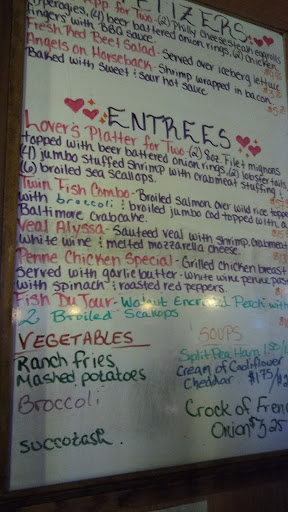 TIZERS
App for Two-(2) Philly cheesesteak eggrolls
Pierogies, (4) beer battered onion rings, (2) chicken
fingers with BBQ sauce
Fresh Red Beet Salad - Served over iceberg lettuce
Angels on Horseback - Shrimp wrapped in bacon
Baked with sweet & sour hot sauce
ENTREES
Lover's Platter for Two - (2) 8oz Filet mignons
topped with beer battered onion rings, (2) lobster tails
(4) jumbo stuffed shrimp with crabmeat stuffing &
(6) broiled sea scallops.
Twin Fish Combo - Broiled salmon over wild rice topped
with broccoli & broiled jumbo cod topped with a
Baltimore crabcake.
Veal Alyssa - Sauteed veal with shrimp, crabmeat
white wine & melted mozzarella cheese.
Penne Chicken Special - Grilled chicken breast
served with garlic butter - white wine penne pasta
with spinach & roasted red peppers.
Fish Du Jour - Walnut Encrusted Perch with
2 Broiled Scallops
VEGETABLES
SOUPS
Ranch fries
Split Pea Ham 1.50/
Mashed potatoes
Cream of Cauliflower
Cheddar $1.75/
Broccoli
Crock of Fren
Onion $5.25
Succotash.